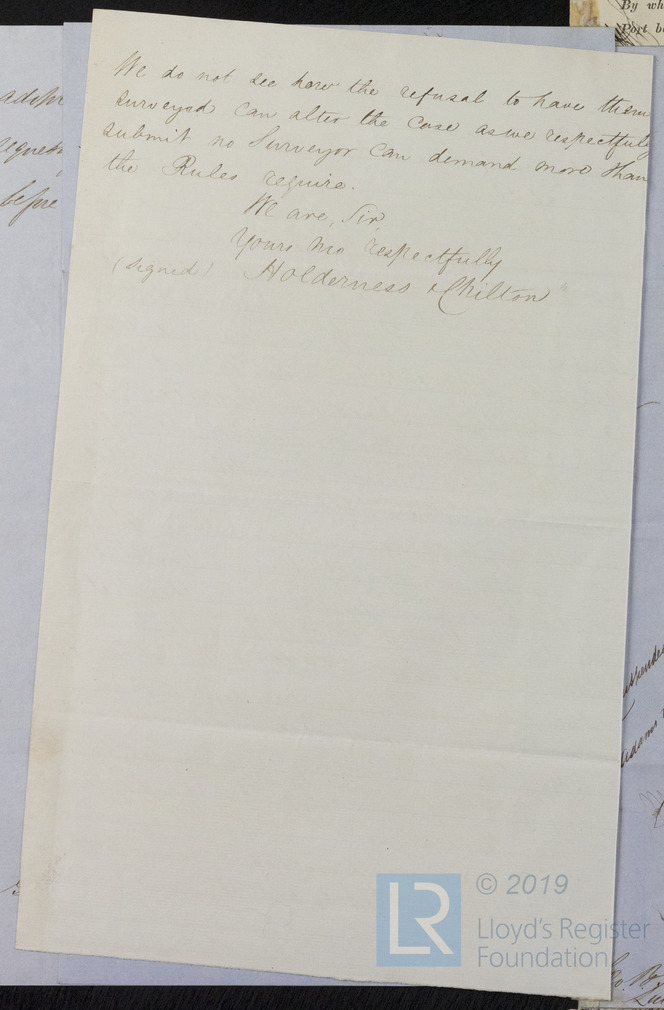 We do not see how the refusal to have them
surveyed can alter the case as we respectfully
submit no Surveyor can demand more than
the Rules require.
We are, Sir,
Yours mo respectfully
(signed) Holderness & Chilton"
© 2019
LR
Lloyd's Register
Foundation
By wh
Port b
before